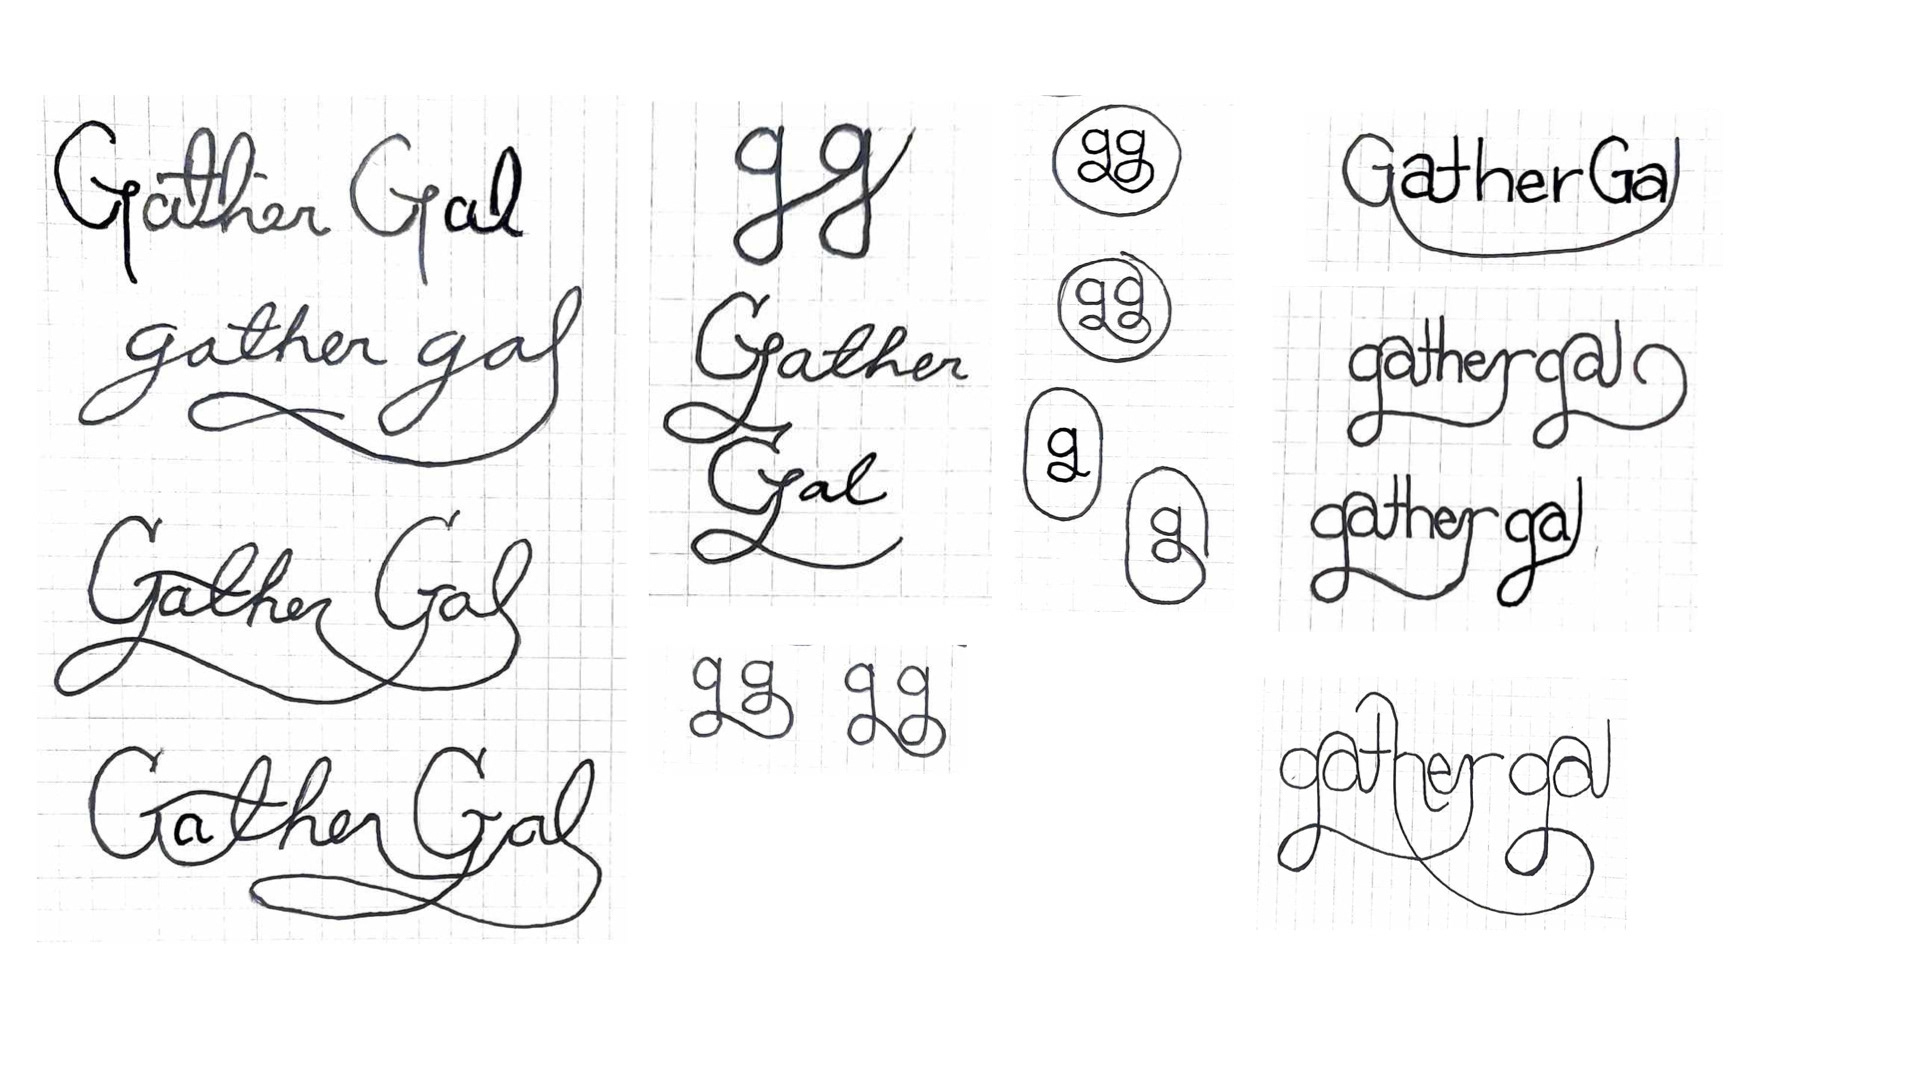 Gather Gal
gather gal
Gather Gal
Gather Gal
gg
Gather
Gal
gg gg
gg
gg
g
g
Gather Gal
gather gal
gather gal
gather gal